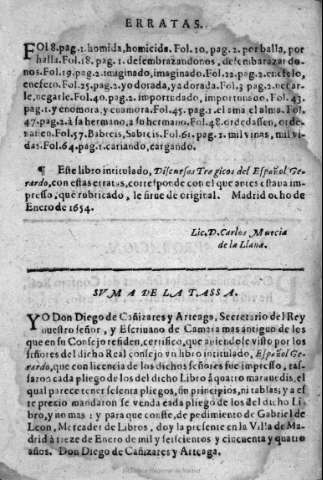 ERRATAS.
FOl 8. pag. 1. homida, homicida. Fol. 10. pag. 2. por balla, por
halla. Fol. 18. pag. 1. desembrazandonos, desembarazandonos.
Fol. 19. pag. 2. imaginado, imaginado. Fol. 22. pag. 2.
enesero. Fol. 25. pag. 2. yo dorada, ya dorada. Fol. 3
negarle. Fol. 40. pag. 2. importudado, importunado. Fol. 43.
pag. 1. y enomora, y enamora. Fol. 45. pag. 1. el ama el alma. Fol.
47. pag. 2. à sa hermano, a su hermano. Fol. 48. ordedassen,
Fol. 57. Babreis, Sabreis. Fol. 61. pag. 2. mil vinas, mil vi-
das. Fol. 64. pag. 1. cariando, cargando.
¶ Este libro intitulado, Discursos Tragicos del Español Ge-
rardo, con estas erratas, corresponde con el que antes estaua im-
presso, que rubricado, le sirue de original. Madrid ocho de
Enero de 1654.
Lic. D. Carlos Murcia
de la Llana.
SVMA DE LA TASSA.
YO Don Diego de Cañizares y Arteaga, Secretario del Rey
nuestro señor, y Escriuano de Camara mas antiguo de los
que en su Consejo residen, certifico, que auiendose visto por los
señores del dicho Real consejo vn libro intitulado, Español Ge-
rardo, que con licencia de los dichos señores fue impresso, tas-
saron cada pliego de los del dicho Libro à quatro marauedis, el
qual parece tener sesenta pliegos, sin principios, ni tablas; y a es-
te precio mandaron se venda cada pliego de los del dicho Li-
bro, y no mas: y para que conste, de pedimiento de Gabriel de
Leon, Mercader de Libros, doy la presente en la Villa de Ma-
drid à treze de Enero de mil y seiscientos y cincuenta y quatro
años. Don Diego de Cañizares y Arteaga.
Biblioteca Nacional de Madrid